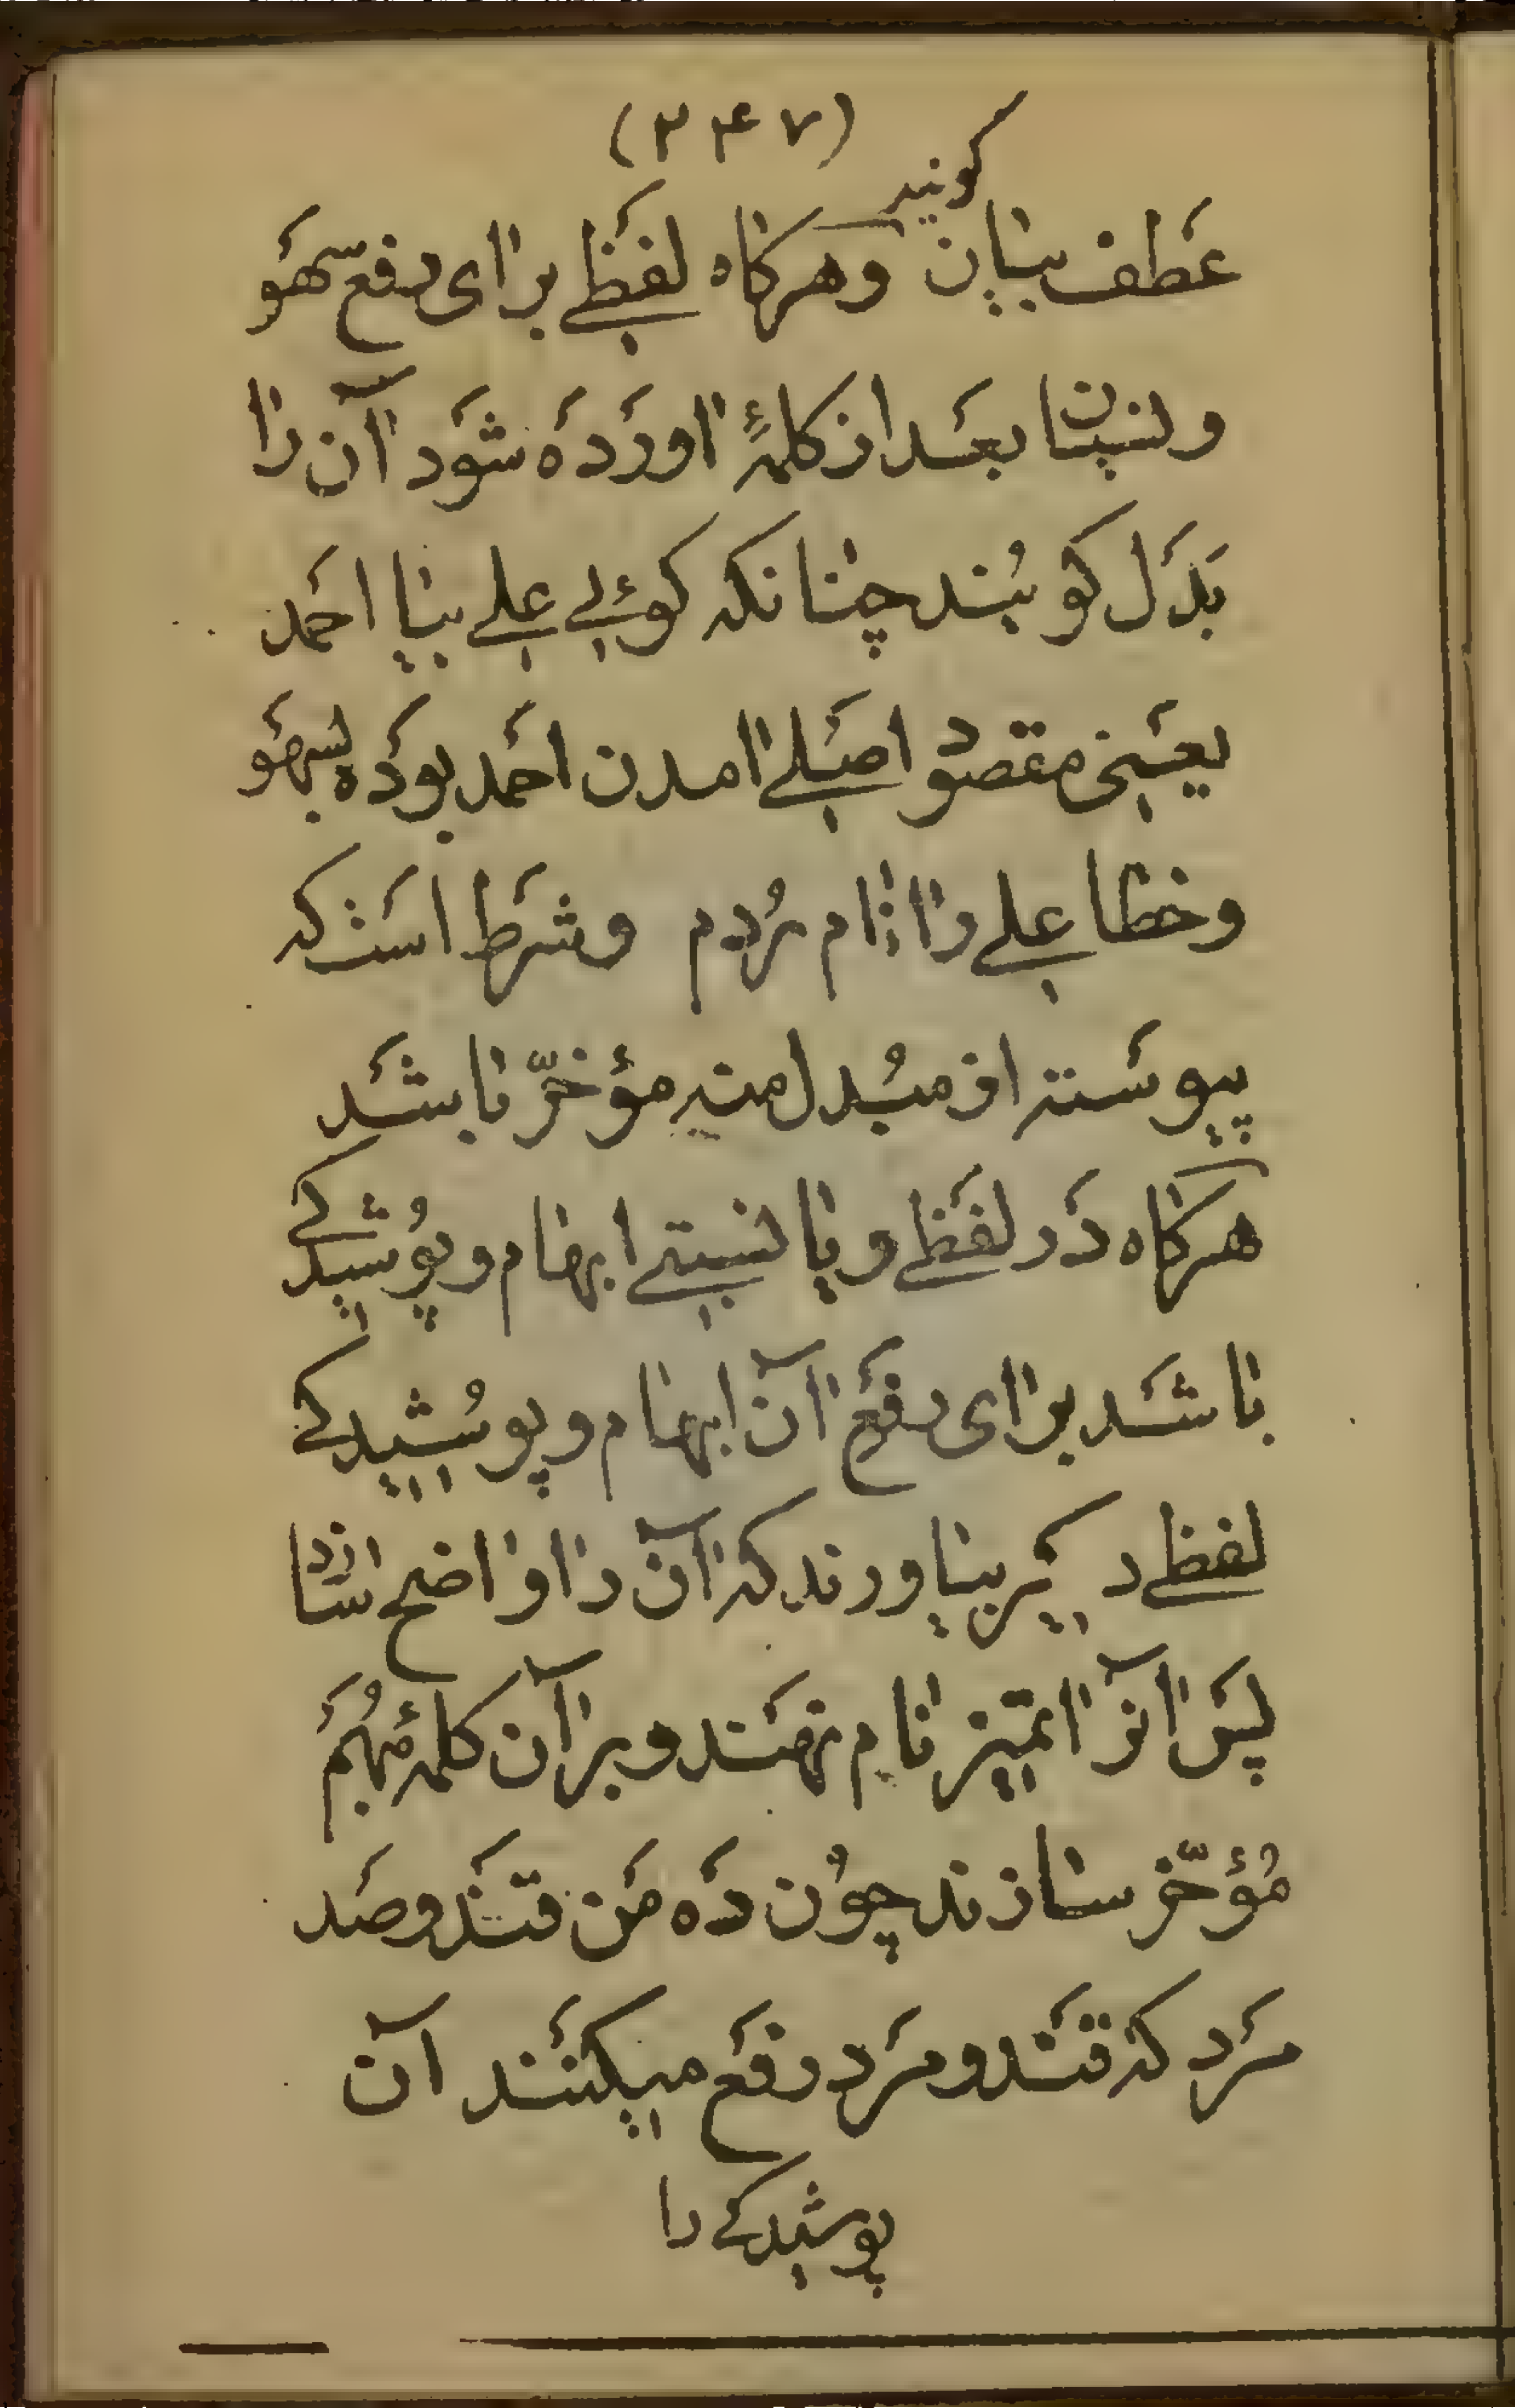 (۲۴۷)
عَطف بیان گویند وهرگاه لفَظی برای دفع سّهَو
ونسیان بعَد از کلمۀٔ اورَدَه شَود آن را
بَدَل گویُند چنانکه گوئی علی بیا احَمد
یعَنی مقصود اصَلی امدن احَمد بودَه بسهَو
وخطا علی را نام بُردم وشَرط اسَت که
پیوسَته از مبُدل منه مؤخّر باشَد
هرگاه دَر لفَظی ویا نسبتی ابهام وپوُشیدگی
باشَد برای رفَع آن ابهام وپوشُیدگی
لفظی دیگر بیاورند که آن را واضح سازد
پسَ آنرا تمیز نام نهَند وبر آن کلمۀ مُبهَم
مُؤخّر سازند چوُن دَه مَن قَند وصَد
مَرد که قَند ومَرد رفَع میکنَند آن
پوشیدگی را